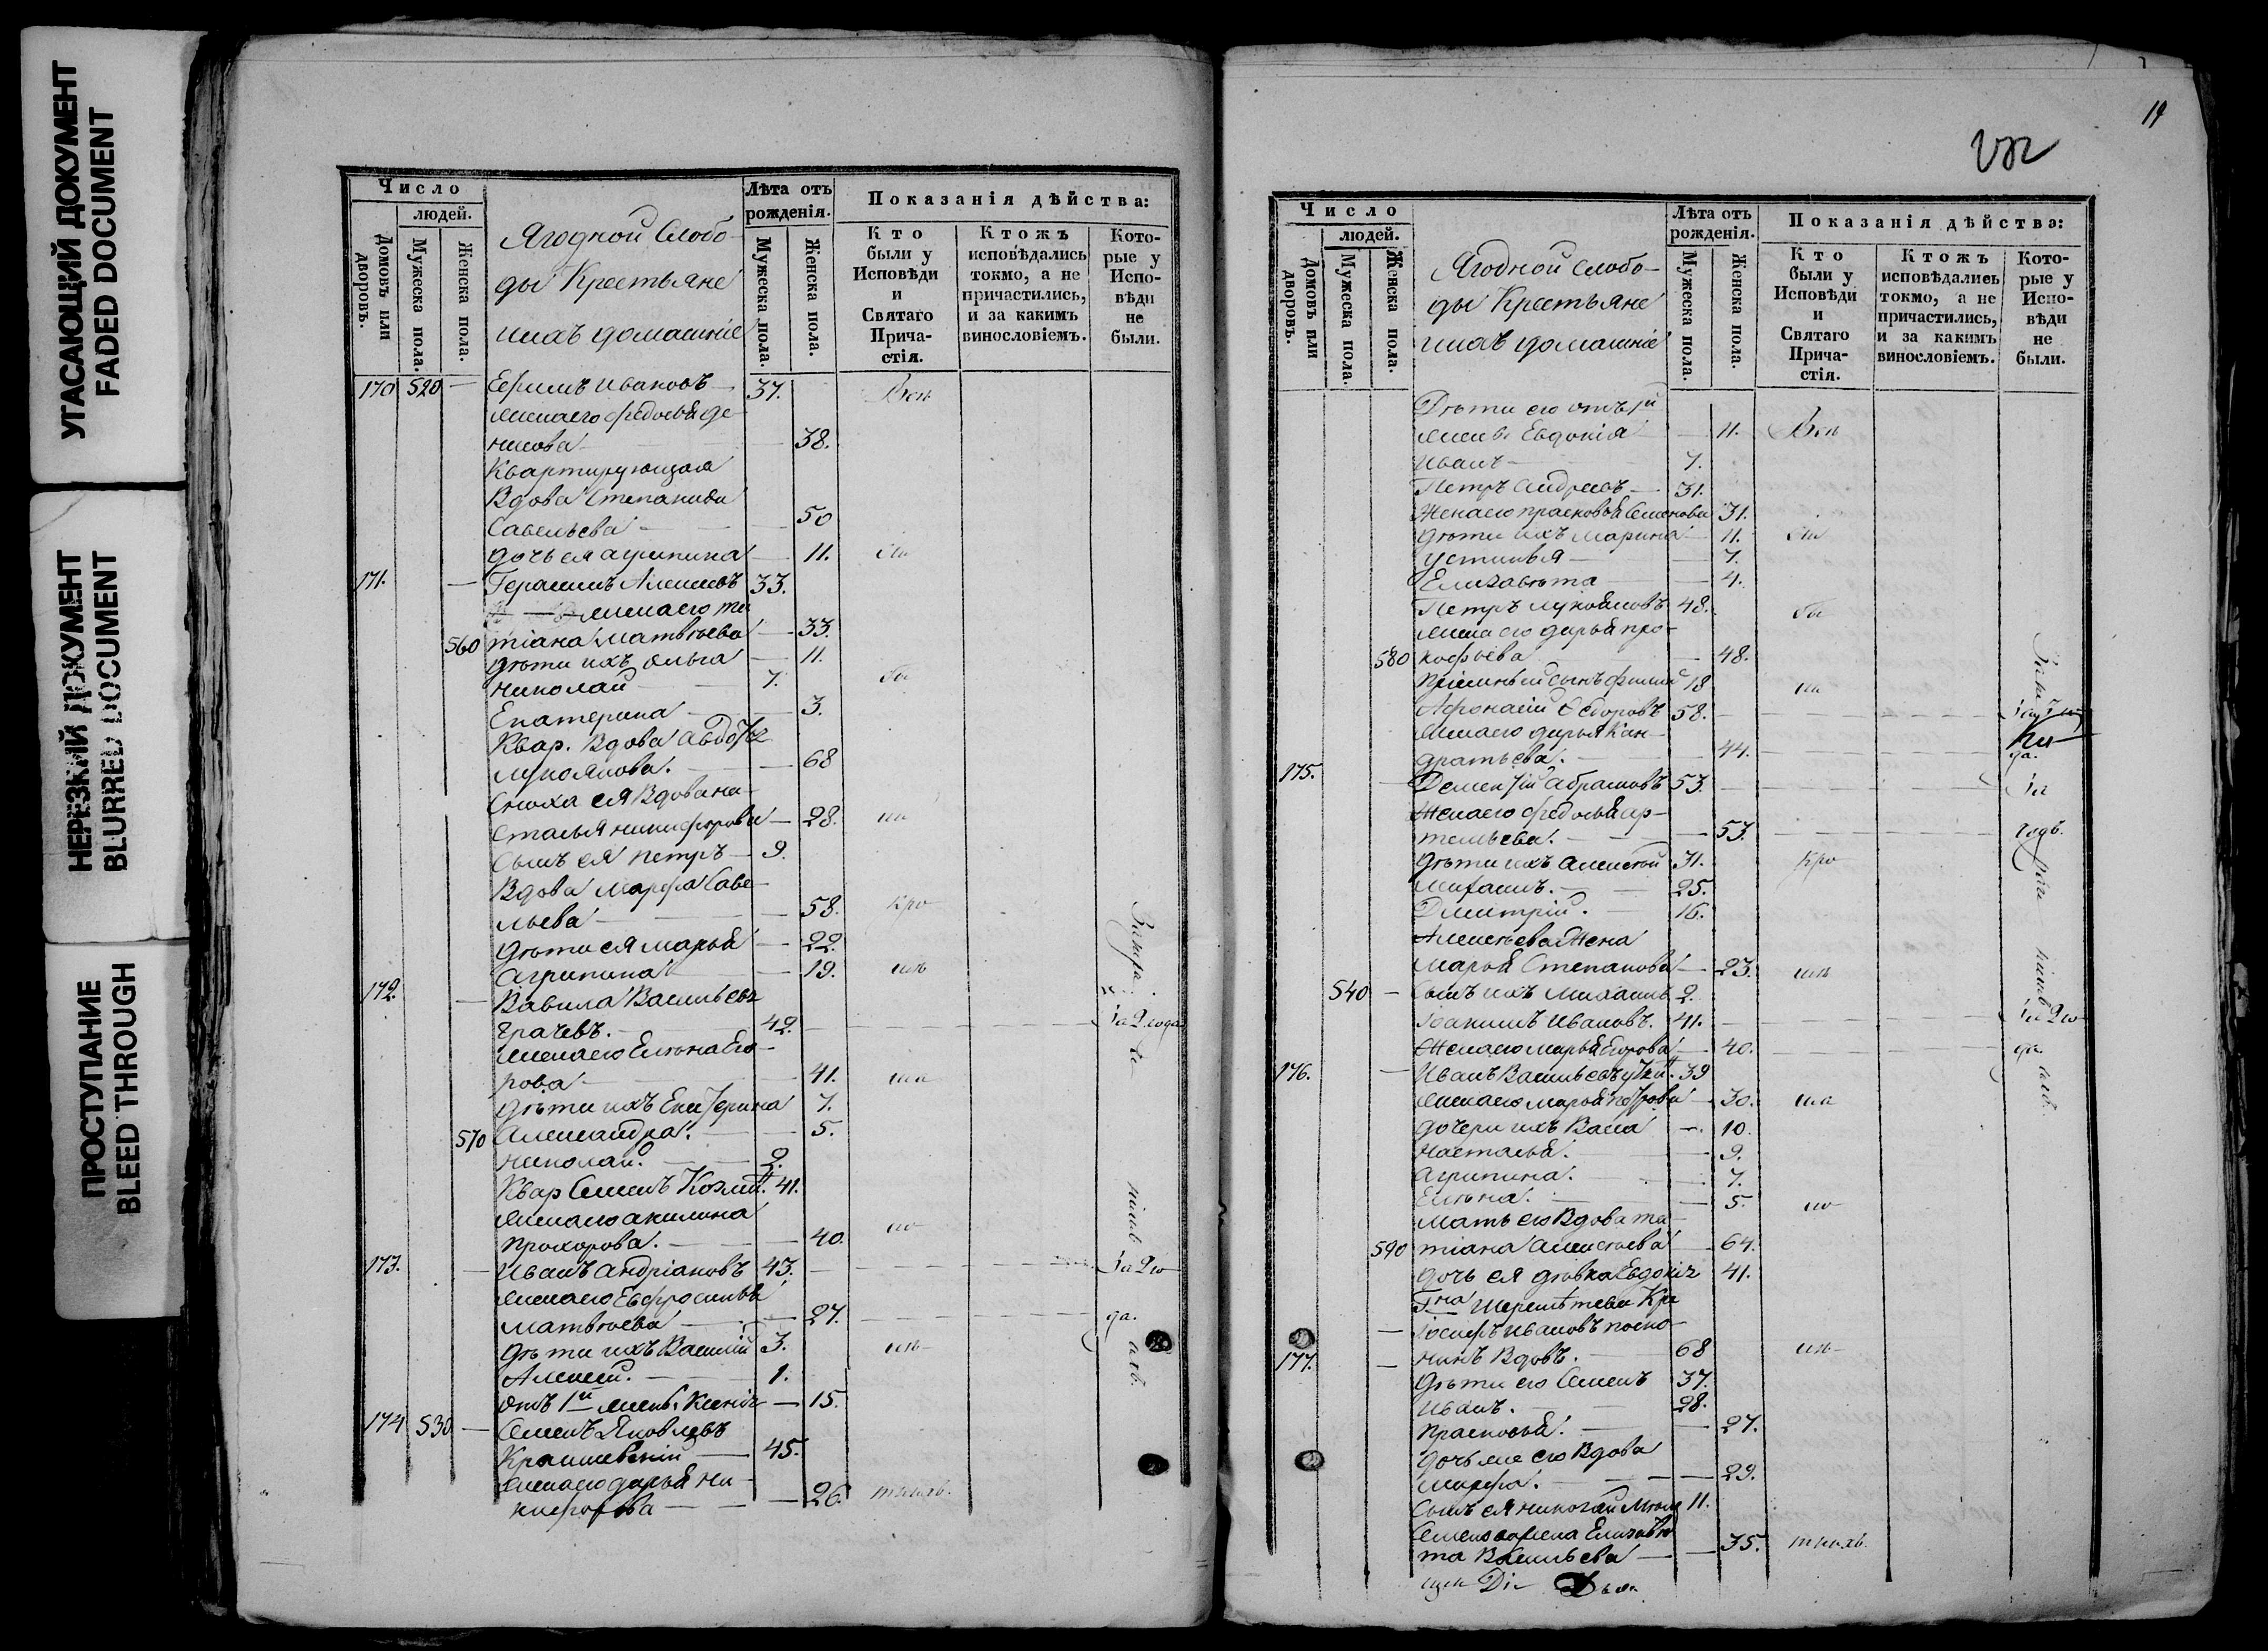 УГАСАЮЩИЙ ДОКУМЕНТ
FADED DOCUMENT
НЕРЕЗКИЙ ДОКУМЕНТ
BLURRED DOCUMENT
ПРОСТУПАНИЕ
BLEED THROUGH
Число
людей.
Домовъ или дворовъ.
Мужеска пола.
Женска пола.
Ягодной Слобо-
ды Крестьяне
ихъ домашніе
Лѣта отъ рожденія.
Мужеска пола.
Женска пола.
Показанія дѣйства:
Кто были у Исповѣди и Святаго Прича-стія.
Ктожъ исповѣдались токмо, а не причастились, и за какимъ винословіемъ.
Кото-рые у Испо-вѣди не были.
170 520 — Ефимъ Ивановъ 37. Вси
Жена его Федосья Де-
нисова 38.
Квартирующая
Вдова Степанида
Савельева 50
Дочь ея Агрипина 11.
171. — Герасимъ 33.
жена его Та
560 тіана Матвѣева 33.
Дѣти ихъ Ольга 11.
Николай 7.
Екатерина 3.
Квар. Вдова Авдотья
Лукоянова. 68
Сноха ея Вдова На-
сталья Никифорова 28.
Сынъ ея Петръ 9.
Вдова Марфа Саве-
льева 58. кро
Дѣти ея Марья 22.
Агрипина 19.
172. — Вавила Васильевъ
Грачевъ. 42. за 2 года
Жена его Елена Его-
рова 41.
Дѣти ихъ Екатерина 7.
570 Александра. 5.
Николай. 2.
Квар Семенъ Козмин. 41.
Жена его Акилина
Прохорова. 40.
173. — Иванъ Андріановъ 43. за 2 го
Жена его Евфросинья
Матвѣева 27. да.
Дѣти ихъ Василій 3.
Алексей. 1.
Отъ 1й жены Ксенія 15.
174 530 — Семенъ Яковлевъ
45.
Жена его Дарья Ни-
кифорова 26.
19
Число
людей.
Домовъ или дворовъ.
Мужеска пола.
Женска пола.
Ягодной Слобо-
ды Крестьяне
ихъ домашніе
Лѣта отъ рожденія.
Мужеска пола.
Женска пола.
Показанія дѣйства:
Кто были у Исповѣди и Святаго Прича-стія.
Ктожъ исповѣдались токмо, а не причастились, и за какимъ винословіемъ.
Кото-рые у Испо-вѣди не были.
Дѣти его отъ 1й
жены Евдокія 11. Вси
Иванъ 7.
Петръ Андреевъ 31.
Жена его Прасковья Семенова 31.
Дѣти ихъ Марина 11.
Устинья 7.
Елизавета 4.
Петръ Лукояновъ 48.
Жена его Дарья Про-
580 кофьева 48.
18
Афонасій Федоровъ 58.
Жена его Дарья Кон-
дратьева. 44. да.
175. — Дементій Абрамовъ 53. за
Жена его Федосья Ар-
темьева. 53. годъ.
Дѣти ихъ Алексей 31. кро
Михаилъ. 25.
Дмитрій. 16.
Алексеева Жена
Марья Степанова 23.
540 — Сынъ ихъ Михаилъ 2.
Іоакимъ Ивановъ. 41. за 2 го
Жена его Марья Егорова 40. да.
176. — Иванъ Васильевъ 39
Жена его Марья Петрова 30.
Дочери ихъ Васса 10.
Насталья. 9.
Агрипина. 7.
Елена. 5.
Мать его Вдова Та-
590 тіана Алексеева 64.
Дочь ея девка Евдокія 41.
Гна Шереметева Кре
— Іосифъ Ивановъ
177. — Вдовъ. 68
Дѣти его Семенъ 37.
Иванъ. 28.
Прасковья. 27.
Дочь же его Вдова
Марфа. 29.
Сынъ ея Николай 11.
Семенова жена Елизаве
та Васильева 35.